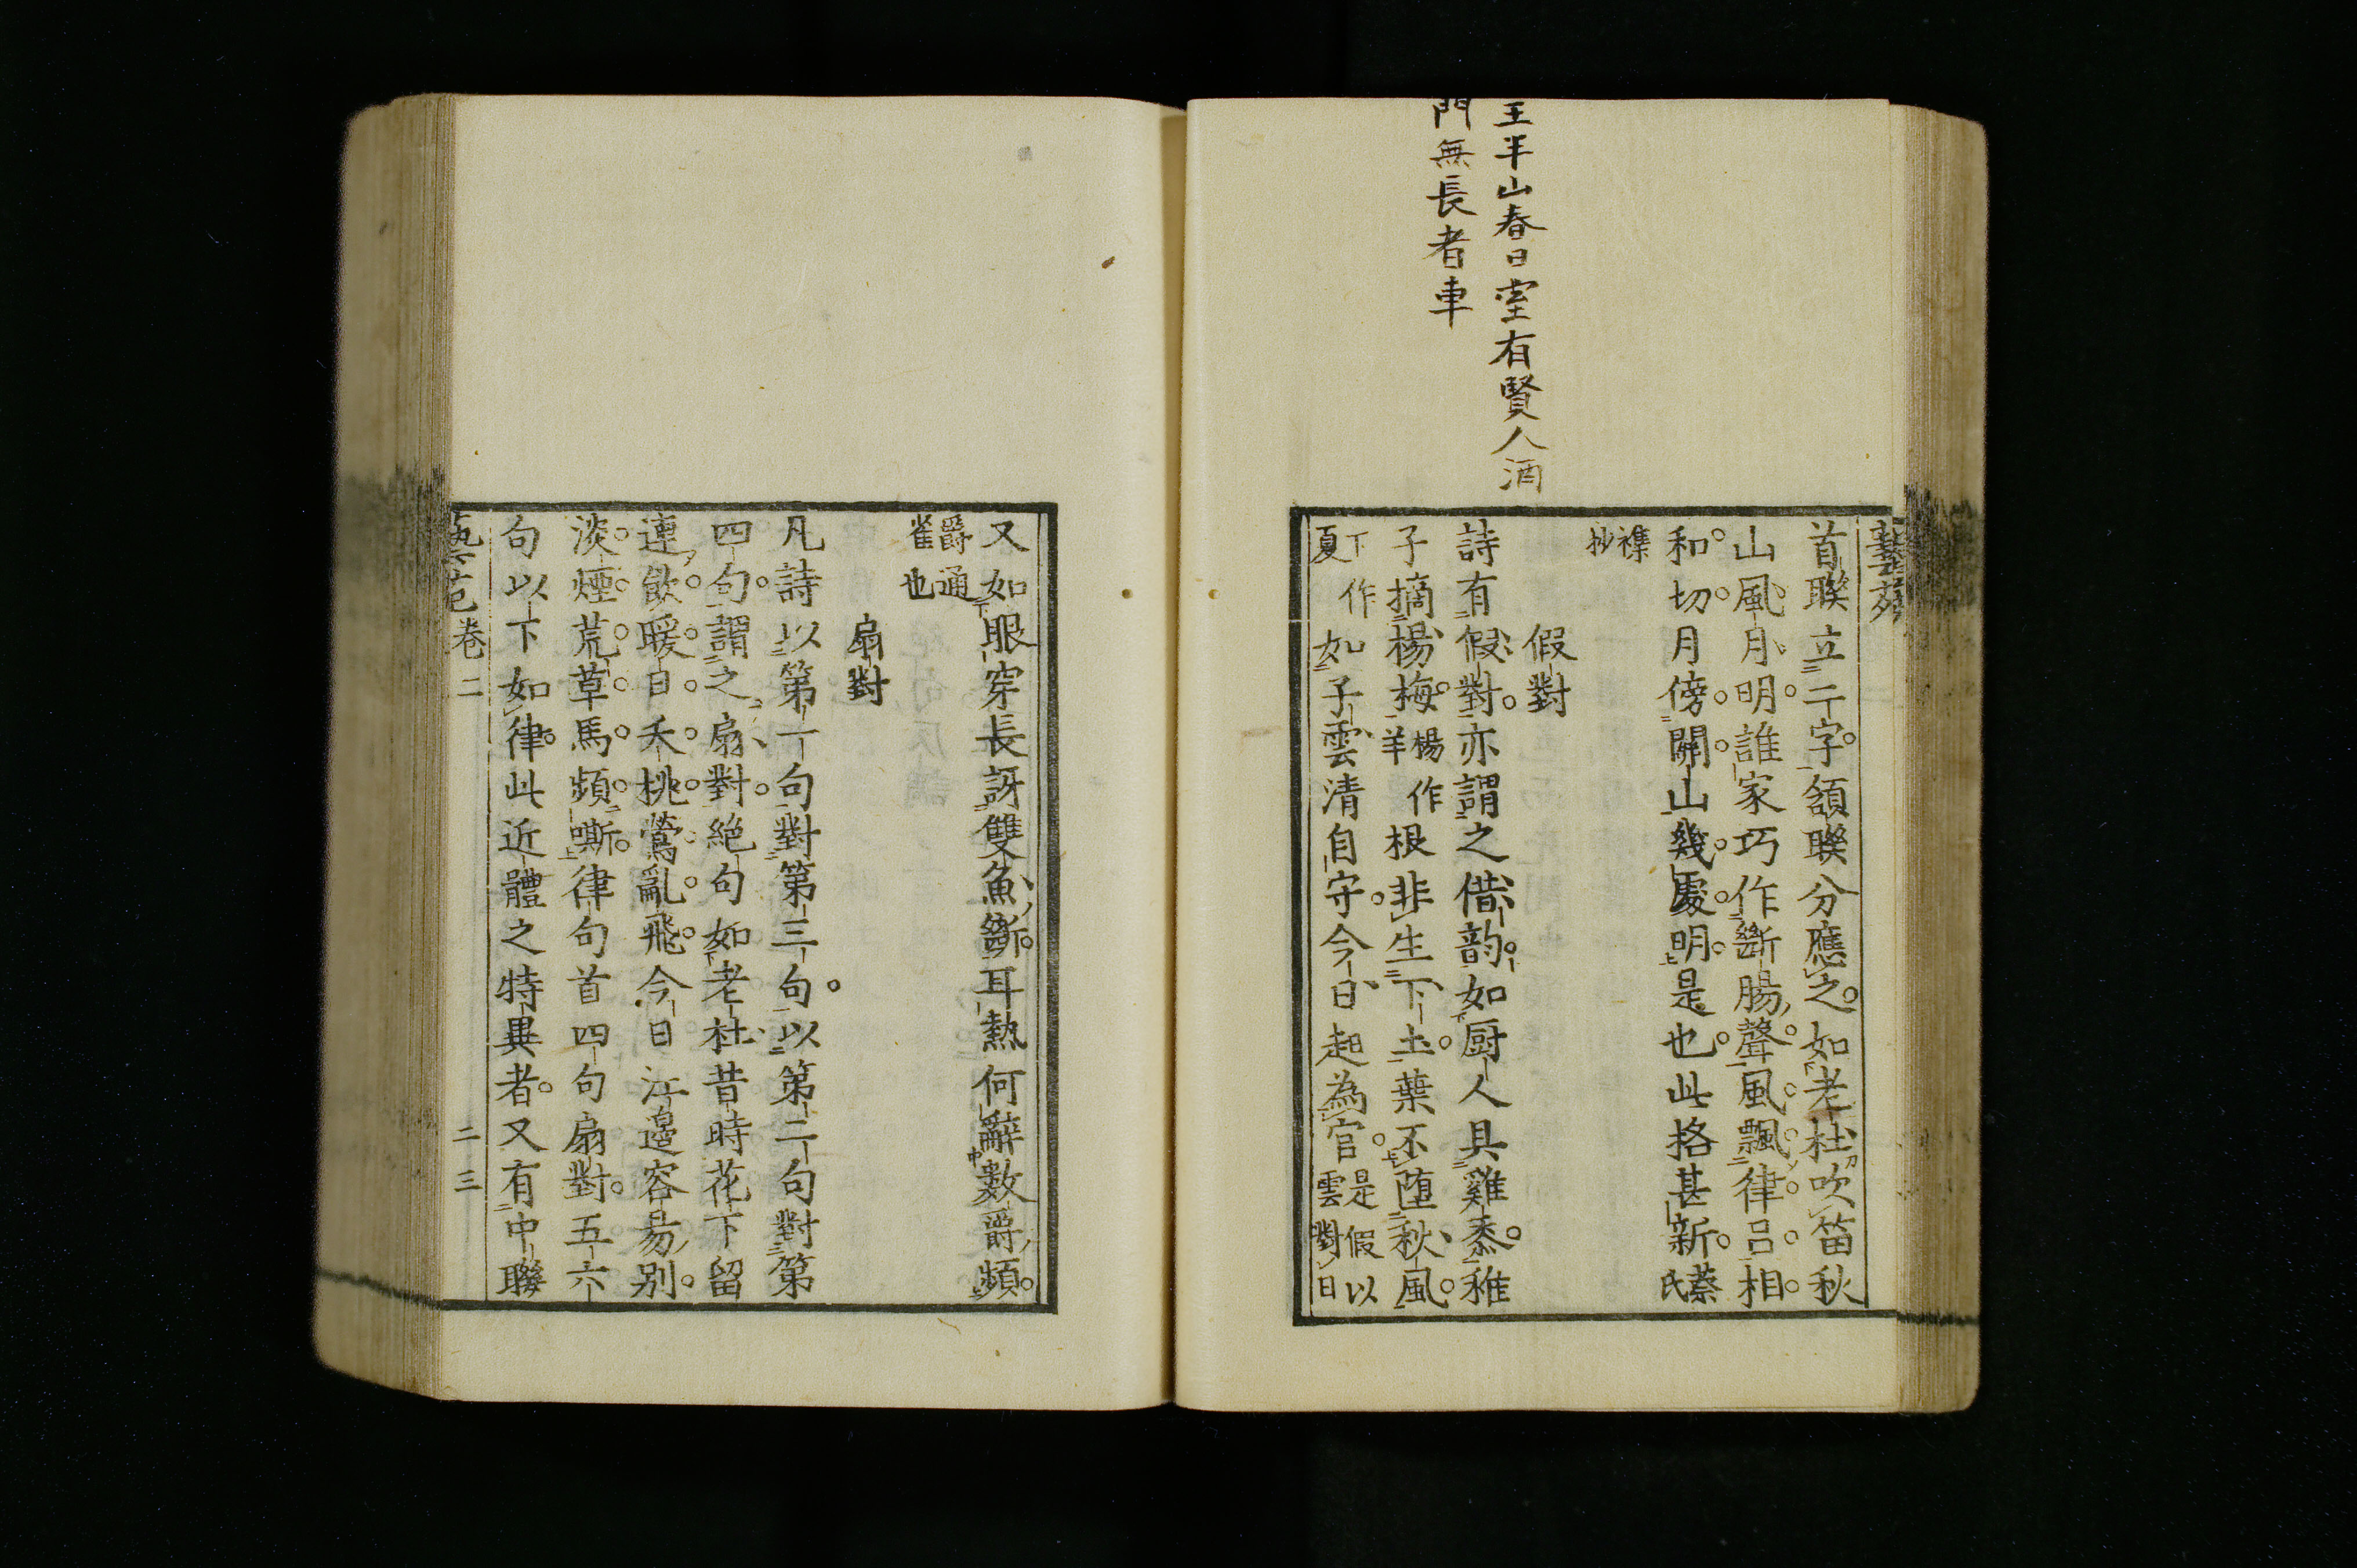 王半山春日室有賢人酒
門無長者車
藝苑
首聯立二字頷聯分應之如老杜吹笛秋
山風月明誰家巧作斷腸聲風飄律呂相
和切月傍關山幾處明是也此格甚新蔡氏
襍抄
假對
詩有假對亦謂之借韵如厨人具雞黍稚
子摘楊梅楊作羊根非生下土葉不墮秋風
下作夏如子雲清自守今日起為官是假以雲對日
又如眼穿長訝雙魚斷耳熱何辭數爵頻
爵通雀也
扇對
凡詩以第一句對第三句以第二句對第
四句謂之扇對絕句如老杜昔時花下留
連飲暖日夭桃鶯亂飛今日江邊容易別
淡煙荒草馬頻嘶律句首四句扇對五六
句以下如律此近體之特異者又有中聯
藝苑卷二
二三